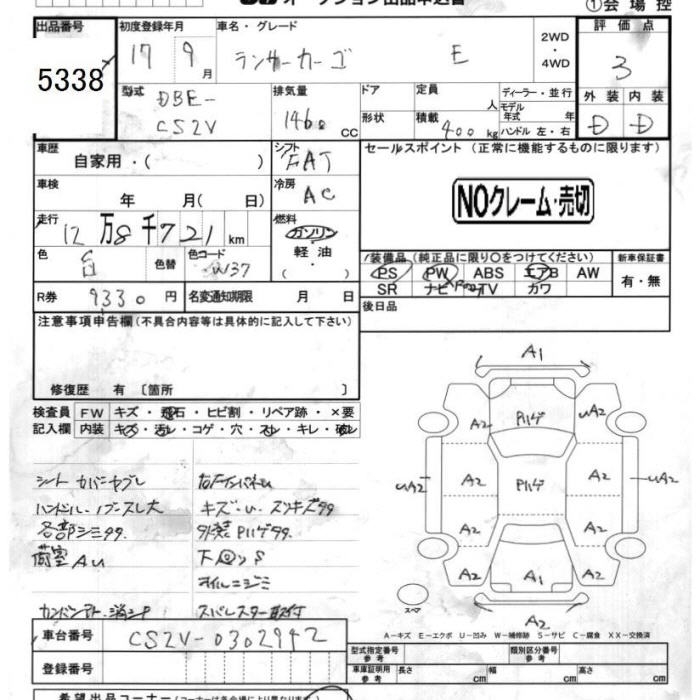 オークション出品申込書
①会場控
出品番号
5338
初度登録年月
17 9月
車名・グレード
ランサーカーゴ E
2WD
・
4WD
評価点
3
外装 内装
D D
型式
DBE-
CS2V
排気量
1460 CC
ドア
形状
定員
人
積載 400 kg
ディーラー・並行
モデル年式 年
ハンドル 左・右
車歴
自家用・( )
シフト
FAT
セールスポイント (正常に機能するものに限ります)
NOクレーム・売切
車検
年 月( 日)
冷房
AC
走行
12万8千721km
燃料
ガソリン
・
軽油
・( )
色
白
色替
色コード
W37
R券 9330円
名変通知期限 月 日
装備品 (純正品に限り○をつけてください)
PS PW ABS エアB AW
SR ナビ TV カワ
新車保証書
有・無
後日品
注意事項申告欄(不具合内容等は具体的に記入して下さい)
修復歴 有 〔箇所 〕
検査員記入欄
FW キズ・飛石・ヒビ割・リペア跡・×要
内装 キズ・汚レ・コゲ・穴・スレ・キレ・破レ
シート カバーヤブレ
ハンドル・ノブスレ大
各部シミ99.
荷室AU
キズ・U・スリキズ99
外装PハゲPP.
下回りS
オイルニジミ
スパレスター取付
A1
A2
Pハゲ
UA2
A2
UA2
A2
Pハゲ
A2
UA2
A2
A2
A2
A1
A2
A2
スペア
A-キズ E-エクボ U-凹み W-補修跡 S-サビ C-腐食 XX-交換済
車台番号 CS2V-0302942
登録番号
型式指定番号 参考
類別区分番号 参考
車庫証明用 参考 長さ cm 幅 cm 高さ cm
希望出品コーナー(コーナーは各会場により異なります)